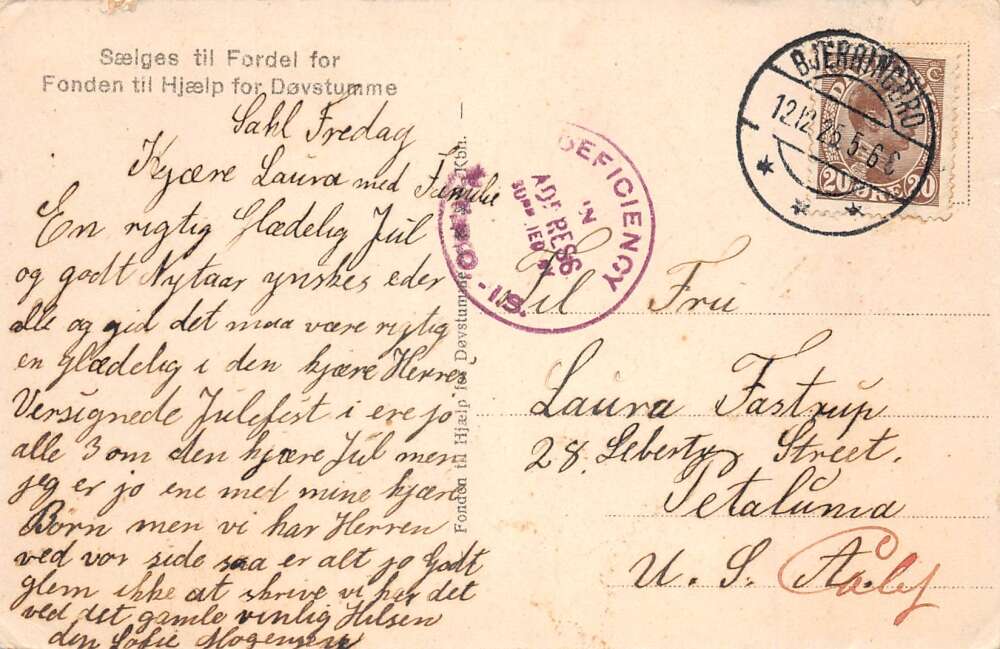 Sælges til Fordel for
Fonden til Hjælp for Døvstumme
Sahl Fredag
Kjære Laura med Familie
En rigtig Glædelig Jul
og godt Nytaar ynskes eder
alle og gid det maa være rigtig
en Glædelig i den kjære Herres
Versignede Julefest i ere jo
alle 3 om den kjære Jul men
jeg er jo ene med mine kjære
Børn men vi har Herren
ved vor side saa er alt jo Godt
glem ikke at skrive vi har det
ved det gamle vinlig Hilsen
den Sofie Mogensen
Fonden til Hjælp for Døvstumme
Kbh.
DEFICIENCY
IN
ADDRESS
SUPPLIED BY
BJERRINGBRO
12.12.25.5-6 E
20 ØRE 20
Til Fru
Laura Fastrup
28. Leberty Street.
Petaluma
U. S. A.
Calif